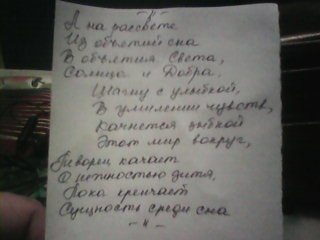 — " —
А на рассвете
Из объятий сна
В объятия Света,
Солнца и Добра.
Шагну с улыбкой,
В умилении чувств,
Качнется зыбкой
Этот мир вокруг,
Творец качает
С нежностью дитя,
Пока крепчает
Сущность среди сна
— " —